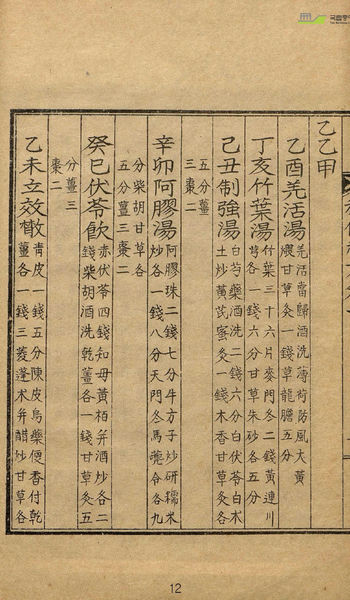 乙乙甲
乙酉羌活湯 羌活當歸酒洗薄荷防風大黃
煨甘草炙一錢草龍膽五分
丁亥竹葉湯 竹葉三十六片麥門冬二錢黃連川
芎各一錢六分甘草朱砂各五分
己丑制強湯 白芍藥酒洗二錢六分白伏苓白朮
土炒黃芪蜜炙一錢木香甘草炙各
五分薑
三棗二
辛卯阿膠湯 阿膠珠二錢七分牛方子炒研糯米
炒各一錢八分天門冬馬兜令各九
分柴胡甘草各
五分薑三棗二
癸巳伏苓飮 赤伏苓四錢知母黃栢幷酒炒各二
錢柴胡酒洗乾薑各一錢甘草炙五
分薑三
棗二
乙未立效散 靑皮一錢五分陳皮烏藥便香付乾
薑各一錢三菱蓬朮幷醋炒甘草各
12